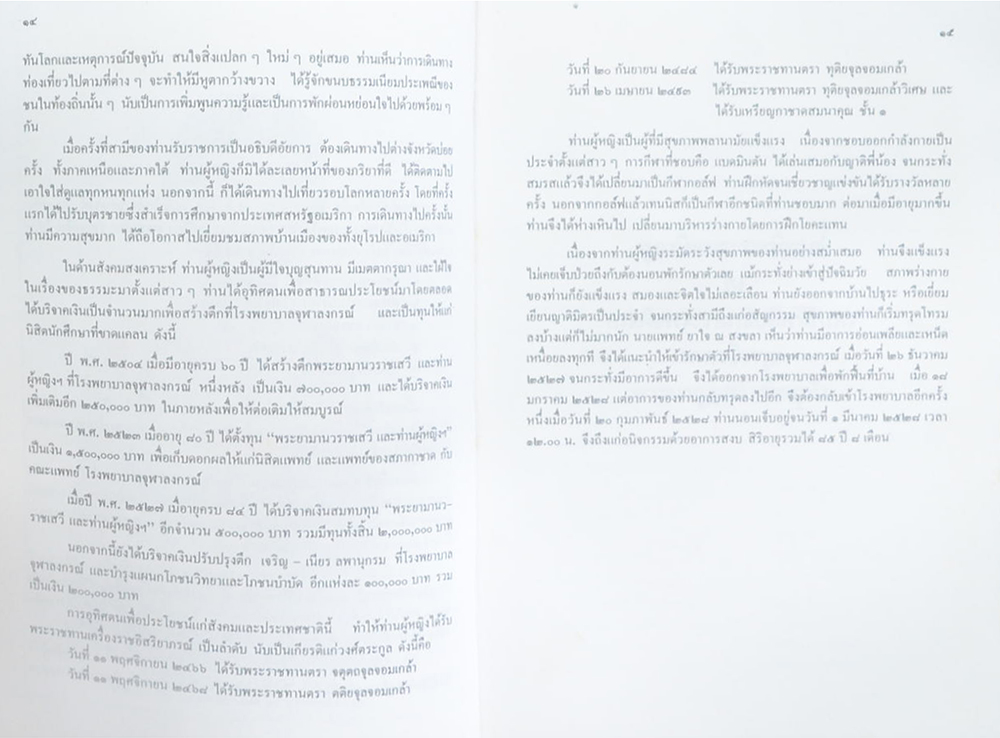 ๑๔
ทันโลกและเหตุการณ์ปัจจุบัน สนใจสิ่งแปลก ๆ ใหม่ ๆ อยู่เสมอ ท่านเห็นว่าการเดินทาง
ท่องเที่ยวไปตามที่ต่าง ๆ จะทำให้มีหูตากว้างขวาง ได้รู้จักขนบธรรมเนียมประเพณีของ
ชนในท้องถิ่นนั้น ๆ นับเป็นการเพิ่มพูนความรู้และเป็นการพักผ่อนหย่อนใจไปด้วยพร้อม ๆ
กัน
เมื่อครั้งที่สามีของท่านรับราชการเป็นอธิบดีอัยการ ต้องเดินทางไปต่างจังหวัดบ่อย
ครั้ง ทั้งภาคเหนือและภาคใต้ ท่านผู้หญิงก็มิได้ละเลยหน้าที่ของภริยาที่ดี ได้ติดตามไป
เอาใจใส่ดูแลทุกหนทุกแห่ง นอกจากนี้ ก็ได้เดินทางไปเที่ยวรอบโลกหลายครั้ง โดยที่ครั้ง
แรกได้ไปรับบุตรชายซึ่งสำเร็จการศึกษาจากประเทศสหรัฐอเมริกา การเดินทางไปครั้งนั้น
ท่านมีความสุขมาก ได้ถือโอกาสไปเยี่ยมชมสภาพบ้านเมืองของทั้งยุโรปและอเมริกา
ในด้านสังคมสงเคราะห์ ท่านผู้หญิงเป็นผู้มีใจบุญสุนทาน มีเมตตากรุณา และใฝ่ใจ
ในเรื่องของธรรมะมาตั้งแต่สาว ๆ ท่านได้อุทิศตนเพื่อสาธารณประโยชน์มาโดยตลอด
ได้บริจาคเงินเป็นจำนวนมากเพื่อสร้างตึกที่โรงพยาบาลจุฬาลงกรณ์ และเป็นทุนให้แก่
นิสิตนักศึกษาที่ขาดแคลน ดังนี้
ปี พ.ศ. ๒๕๐๔ เมื่อมีอายุครบ ๖๐ ปี ได้สร้างตึกพระยามานวราชเสวี และท่าน
ผู้หญิงฯ ที่โรงพยาบาลจุฬาลงกรณ์ หนึ่งหลัง เป็นเงิน ๗๐๐,๐๐๐ บาท และได้บริจาคเงิน
เพิ่มเติมอีก ๒๕๐,๐๐๐ บาท ในภายหลังเพื่อให้ต่อเติมให้สมบูรณ์
ปี พ.ศ. ๒๕๒๓ เมื่ออายุ ๘๐ ปี ได้ตั้งทุน “พระยามานวราชเสวี และท่านผู้หญิงฯ”
เป็นเงิน ๑,๕๐๐,๐๐๐ บาท เพื่อเก็บดอกผลให้แก่นิสิตแพทย์ และแพทย์ของสภากาชาด กับ
คณะแพทย์ โรงพยาบาลจุฬาลงกรณ์
เมื่อปี พ.ศ. ๒๕๒๗ เมื่ออายุครบ ๘๔ ปี ได้บริจาคเงินสมทบทุน “พระยามานว-
ราชเสวี และท่านผู้หญิงฯ” อีกจำนวน ๕๐๐,๐๐๐ บาท รวมมีทุนทั้งสิ้น ๒,๐๐๐,๐๐๐ บาท
นอกจากนี้ยังได้บริจาคเงินปรับปรุงตึก เจริญ – เนียร ลพานุกรม ที่โรงพยาบาล
จุฬาลงกรณ์ และบำรุงแผนกโภชนวิทยาและโภชนบำบัด อีกแห่งละ ๑๐๐,๐๐๐ บาท รวม
เป็นเงิน ๒๐๐,๐๐๐ บาท
การอุทิศตนเพื่อประโยชน์แก่สังคมและประเทศชาตินี้ ทำให้ท่านผู้หญิงได้รับ
พระราชทานเครื่องราชอิสริยาภรณ์ เป็นลำดับ นับเป็นเกียรติแก่วงศ์ตระกูล ดังนี้คือ
วันที่ ๑๑ พฤศจิกายน ๒๔๖๖ ได้รับพระราชทานตรา จตุตถจุลจอมเกล้า
วันที่ ๑๑ พฤศจิกายน ๒๔๖๘ ได้รับพระราชทานตรา ตติยจุลจอมเกล้า
๑๕
วันที่ ๒๐ กันยายน ๒๔๘๔ ได้รับพระราชทานตรา ทุติยจุลจอมเกล้า
วันที่ ๒๖ เมษายน ๒๔๙๓ ได้รับพระราชทานตรา ทุติยจุลจอมเกล้าวิเศษ และ
ได้รับเหรียญกาชาดสมนาคุณ ชั้น ๑
ท่านผู้หญิงเป็นผู้ที่มีสุขภาพพลานามัยแข็งแรง เนื่องจากชอบออกกำลังกายเป็น
ประจำตั้งแต่สาว ๆ การกีฬาที่ชอบคือ แบดมินตัน ได้เล่นเสมอกับญาติพี่น้อง จนกระทั่ง
สมรสแล้วจึงได้เปลี่ยนมาเป็นกีฬากอล์ฟ ท่านฝึกหัดจนเชี่ยวชาญแข่งขันได้รับรางวัลหลาย
ครั้ง นอกจากกอล์ฟแล้วเทนนิสก็เป็นกีฬาอีกชนิดที่ท่านชอบมาก ต่อมาเมื่อมีอายุมากขึ้น
ท่านจึงได้ห่างเหินไป เปลี่ยนมาบริหารร่างกายโดยการฝึกโยคะแทน
เนื่องจากท่านผู้หญิงระมัดระวังสุขภาพของท่านอย่างสม่ำเสมอ ท่านจึงแข็งแรง
ไม่เคยเจ็บป่วยถึงกับต้องนอนพักรักษาตัวเลย แม้กระทั่งย่างเข้าสู่ปัจฉิมวัย สภาพร่างกาย
ของท่านก็ยังแข็งแรง สมองและจิตใจไม่เลอะเลือน ท่านยังออกจากบ้านไปธุระ หรือเยี่ยม
เยียนญาติมิตรเป็นประจำ จนกระทั่งสามีถึงแก่อสัญกรรม สุขภาพของท่านก็เริ่มทรุดโทรม
ลงบ้างแต่ก็ไม่มากนัก นายแพทย์ ยาใจ ณ สงขลา เห็นว่าท่านมีอาการอ่อนเพลียและเหน็ด
เหนื่อยลงทุกที จึงได้แนะนำให้เข้ารักษาตัวที่โรงพยาบาลจุฬาลงกรณ์ เมื่อวันที่ ๒๖ ธันวาคม
๒๕๒๗ จนกระทั่งมีอาการดีขึ้น จึงได้ออกจากโรงพยาบาลเพื่อพักฟื้นที่บ้าน เมื่อ ๑๘
มกราคม ๒๕๒๘ แต่อาการของท่านกลับทรุดลงไปอีก จึงต้องกลับเข้าโรงพยาบาลอีกครั้ง
หนึ่งเมื่อวันที่ ๒๐ กุมภาพันธ์ ๒๕๒๘ ท่านนอนเจ็บอยู่จนวันที่ ๑ มีนาคม ๒๕๒๘ เวลา
๑๒.๐๐ น. จึงถึงแก่อนิจกรรมด้วยอาการสงบ สิริอายุรวมได้ ๘๕ ปี ๘ เดือน